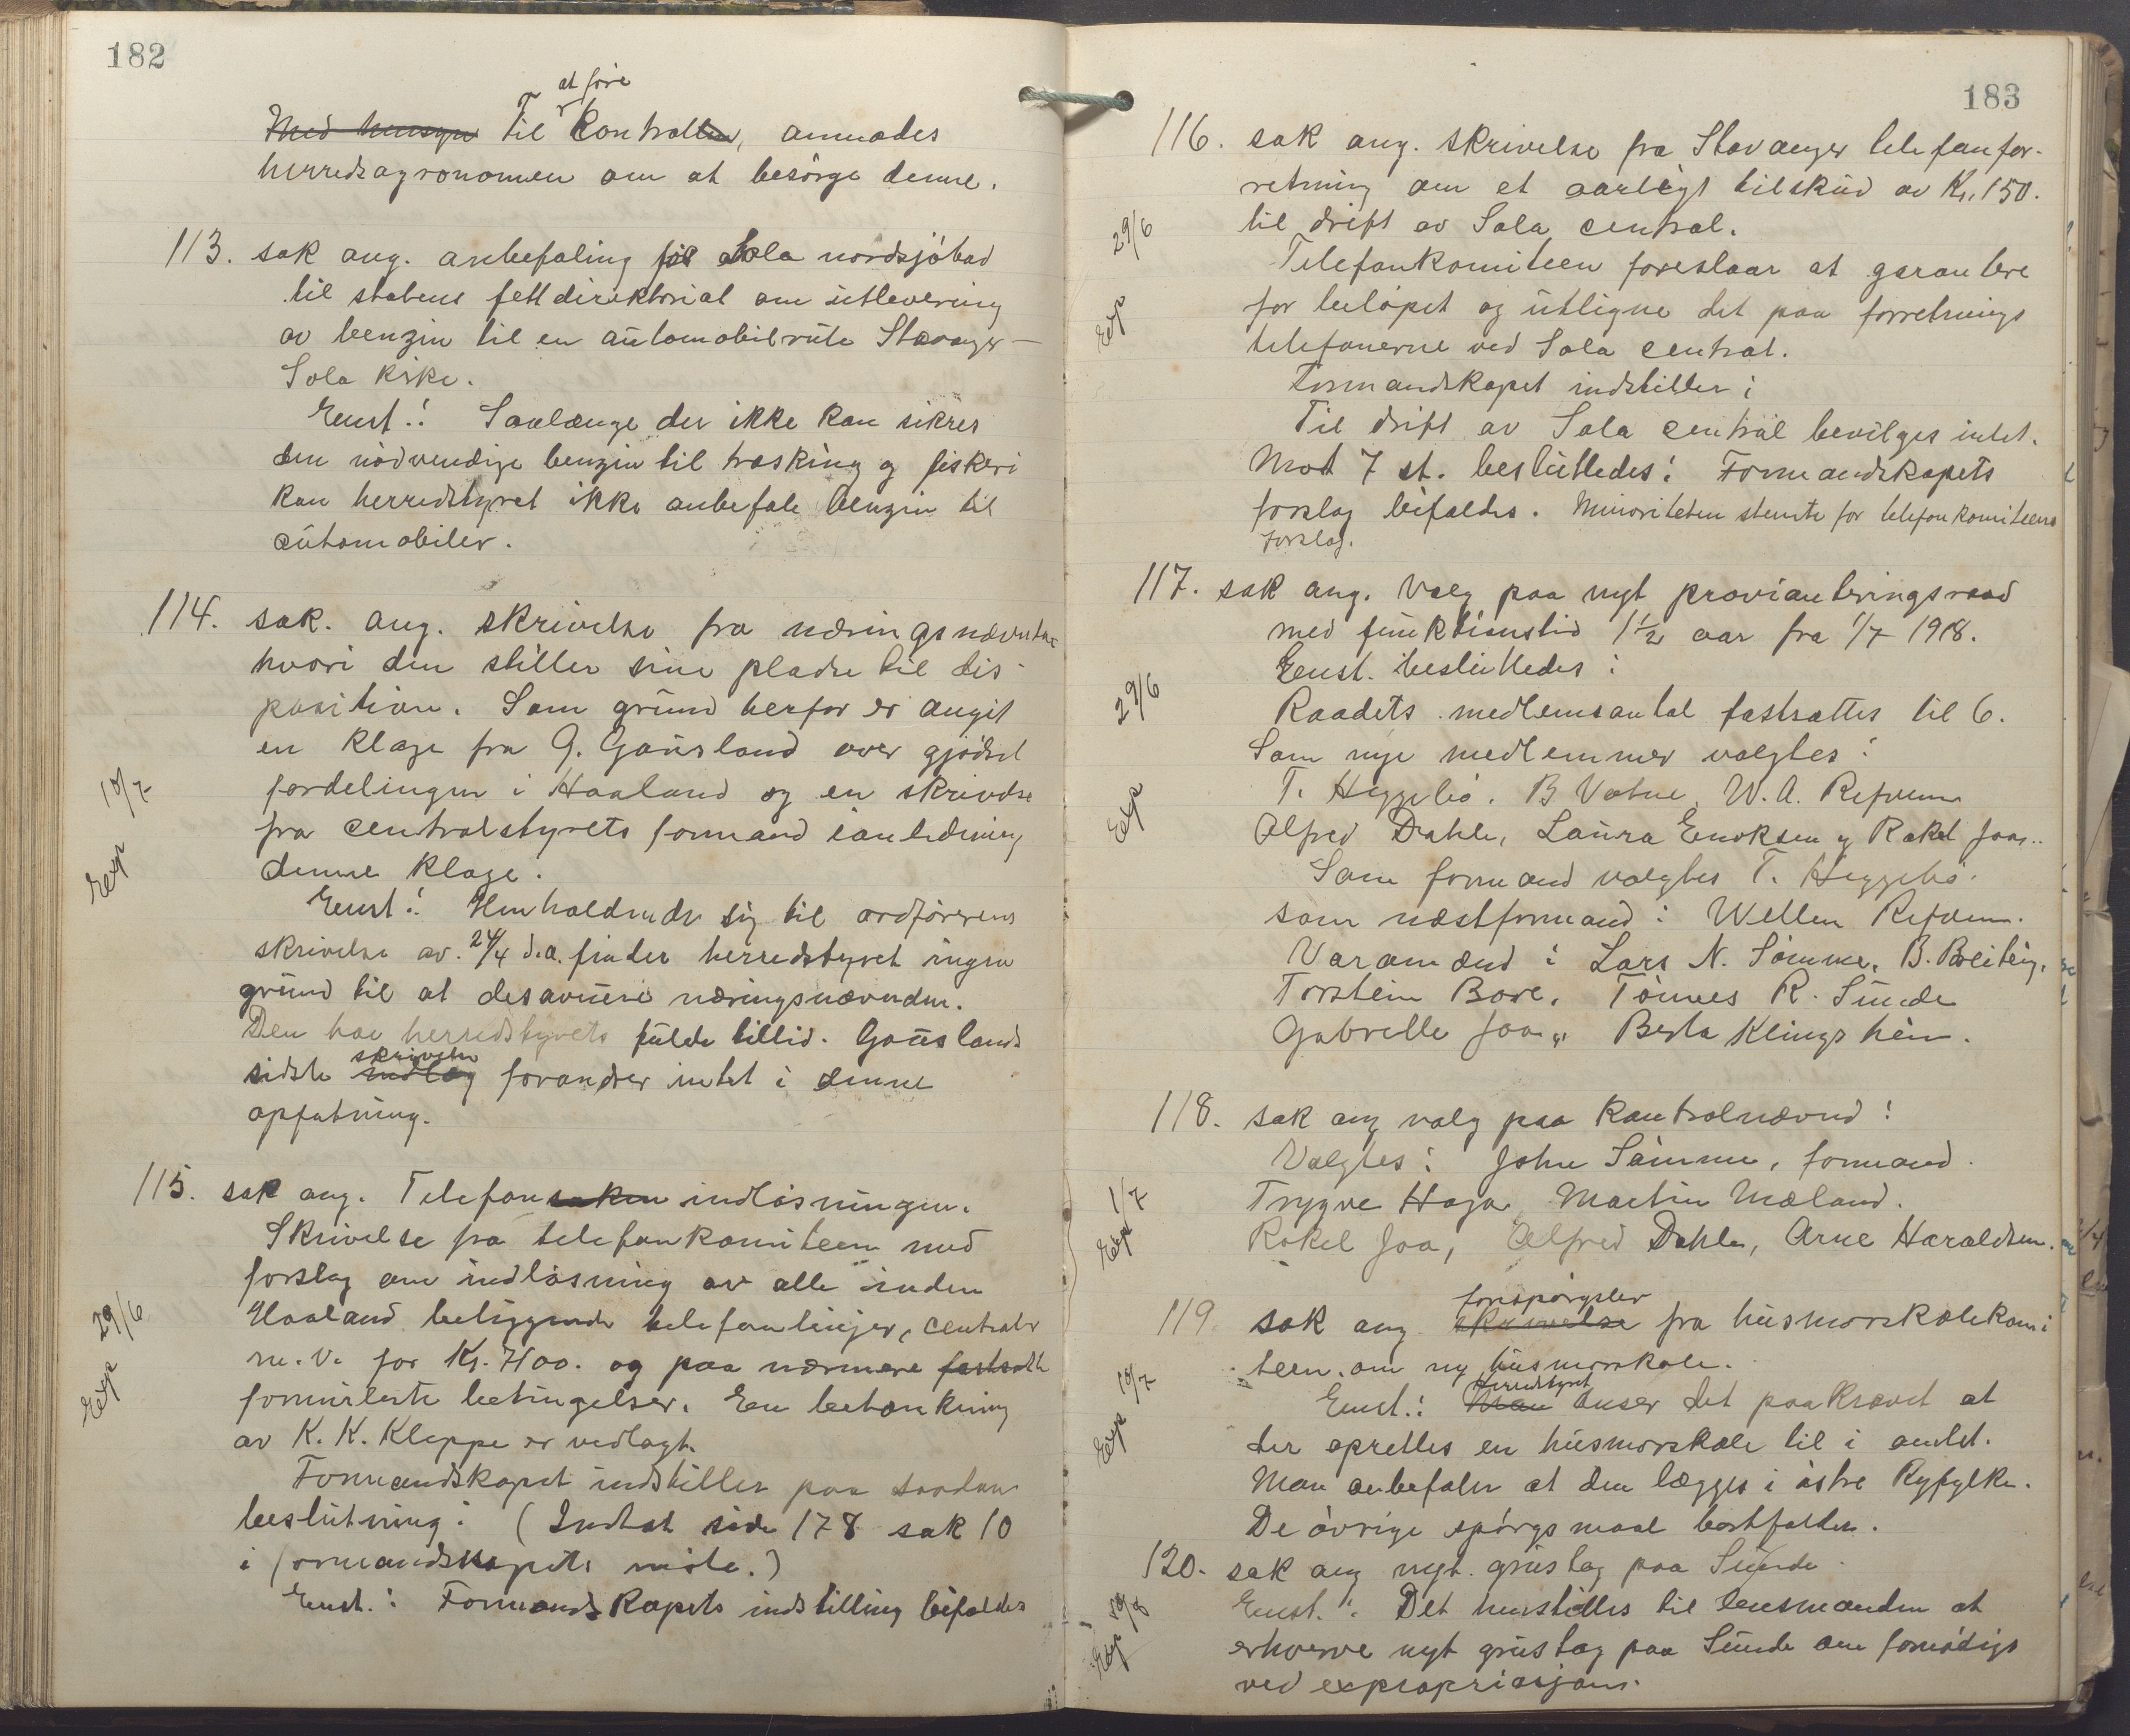 182
at føre
~~Med hensyn~~ Til Kontrollen, anmodes
herredsagronomen om at besørge denne.
113. sak ang. anbefaling for Sola nordsjøbad
til statens fettdirektorat om utlevering
av benzin til en automobilrute Stavanger –
Sola kirke.
Enst.: Saalænge der ikke kan sikres
den nødvendige benzin til træsking og fiskeri
kan herredstyret ikke anbefale benzin til
automobiler.
114. sak. ang. skrivelse fra næringsnævnden
hvori den stiller sine pladse til dis-
position. Som grund herfor er angit
en klage fra G. Gausland over gjødsel
fordelingen i Haaland og en skrivelse
10/7
fra centralstyrets formand i anledning
Exp
denne klage.
Enst.: Henholdende sig til ordførerens
skrivelse av. 24/4 d.a. finder herredstyret ingen
grund til at desavuere næringsnævnden.
Den har herredstyrets fulde tillid. Gauslands
skrivelse
sidste ~~indlæg~~ forandrer intet i denne
opfatning.
115. sak ang. Telefon~~saken~~ indløsningen.
Skrivelse fra telefonkomiteen med
forslag om indløsning av alle inden
29/6
Haaland beliggende telefonlinjer, centraler
m.v. for Kr. 7400. og paa nærmere ~~fastsatte~~
Exp
formulerte betingelser. En betænkning
av K. K. Kleppe er vedlagt.
Formandskapet indstiller paa saadan
beslutning: (Indtat side 178 sak 10
i formandskapets møte.)
Enst.: Formandskapets indstilling bifaldes
183
116. sak ang. skrivelse fra Stavanger telefonfor-
retning om et aarlegt tilskud av Kr. 150.
29/6
til drift av Sola central.
Telefonkomiteen foreslaar at garantere
Exp
for beløpet og utligne det paa forretnings
telefonerne ved Sola central.
Formandskapet indstiller:
Til drift av Sola central bevilges intet.
Mot 7 st. besluttedes: Formandskapets
forslag bifaldes. Minoriteten stemte for telefonkomiteens
forslag.
117. sak ang. Valg paa nyt provianteringsraad
med funktionstid 1½ aar fra 1/7 1918.
Enst. besluttedes:
29/6
Raadets medlemsantal fastsættes til 6.
Som nye medlemmer valgtes:
T. Heggebø. B Vatne, W. A. Refvem
Exp
Alfred Dahle, Laura Enoksen og Rakel Joa..
Som formand valgtes T. Heggebø.
som næstformand: Wellem Refvem.
Varamænd: Lars N. Sømme, B. Breiting,
Torstein Bore, Tønnes R. Sunde
Gabrielle Joa, Berta Klingsheim.
118. sak ang valg paa Kontrolnævnd:
Valgtes: John Sømme, formand.
1/7
Trygve Haga, Martin Mæland.
Exp
Rakel Joa, Alfred Dahle, Arne Haraldsen.
forespørgsler
119 sak ang ~~skrivelse~~ fra husmorskolekomi
teen. om ny husmorskole.
10/7
herredstyret
Enst.: ~~Man~~ anser det paakrævet at
Exp
der oprettes en husmorskole til i amtet.
Man anbefaler at den lægges i østre Ryfylke.
De øvrige spørgsmaal bortfalder.
120. sak ang nyt. grustag paa Sunde.
Enst.: Det henstilles til lensmanden at
Exp
erhverve nyt grustag paa Sunde om fornødigt
ved expropriasjon.